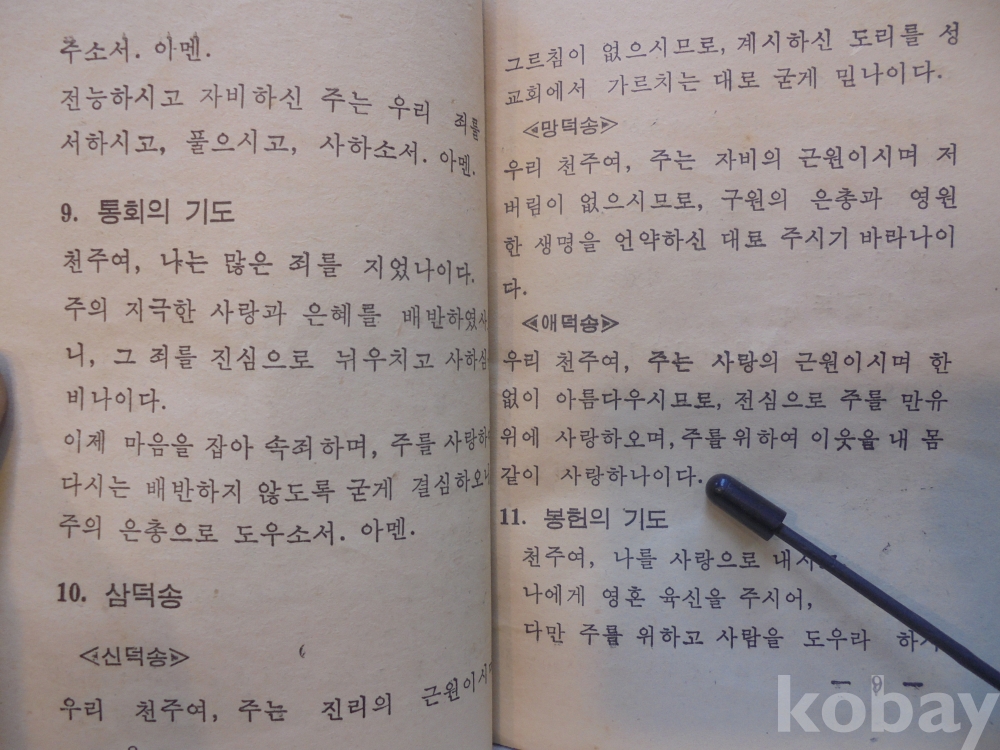 주소서. 아멘.
전능하시고 자비하신 주는 우리 죄를
서하시고, 풀으시고, 사하소서. 아멘.
9. 통회의 기도
천주여, 나는 많은 죄를 지었나이다.
주의 지극한 사랑과 은혜를 배반하였사
니, 그 죄를 진심으로 뉘우치고 사하심
비나이다.
이제 마음을 잡아 속죄하며, 주를
다시는 배반하지 않도록 굳게 결심하오니
주의 은총으로 도우소서. 아멘.
10. 삼덕송
≪신덕송≫
우리 천주여, 주는 진리의 근원이시
그르침이 없으시므로, 계시하신 도리를 성
교회에서 가르치는 대로 굳게 믿나이다.
≪망덕송≫
우리 천주여, 주는 자비의 근원이시며 저
버림이 없으시므로, 구원의 은총과 영원
한 생명을 언약하신 대로 주시기 바라나이
다.
≪애덕송≫
우리 천주여, 주는 사랑의 근원이시며 한
없이 아름다우시므로, 전심으로 주를 만유
위에 사랑하오며, 주를 위하여 이웃을 내 몸
같이 사랑하나이다.
11. 봉헌의 기도
천주여, 나를 사랑으로
나에게 영혼 육신을 주시어,
다만 주를 위하고 사람을 도우라
kobay